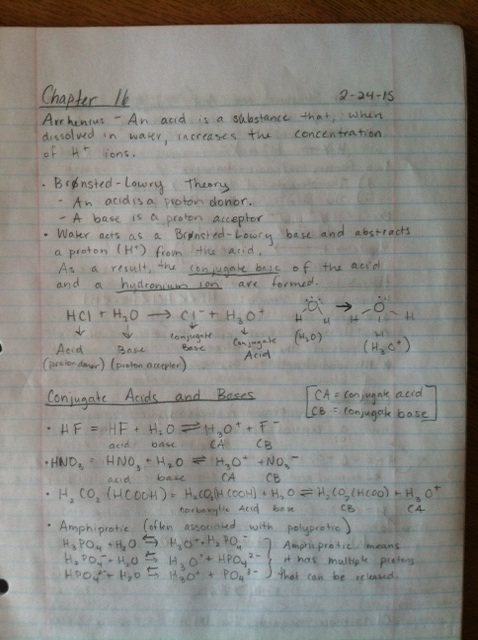 Chapter 16 2-24-15
Arrhenius - An acid is a substance that, when
dissolved in water, increases the concentration
of H⁺ ions.
• Brønsted-Lowry Theory
- An acid is a proton donor.
- A base is a proton acceptor
• Water acts as a Brønsted-Lowry base and abstracts
a proton (H⁺) from the acid.
As a result, the conjugate base of the acid
and a hydronium ion are formed.
HCl + H₂O → Cl⁻ + H₃O⁺ H O H → H O H
↓ ↓ ↓ ↓ (H₂O) H
Acid Base conjugate Base Conjugate Acid (H₃O⁺)
(proton donor) (proton acceptor)
Conjugate Acids and Bases [CA = conjugate acid
CB = conjugate base]
• HF = HF + H₂O ⇌ H₃O⁺ + F⁻
acid base CA CB
• HNO₃ = HNO₃ + H₂O ⇌ H₃O⁺ + NO₃⁻
acid base CA CB
• H₂CO₂ (HCOOH) = H₂CO₂(HCOOH) + H₂O ⇌ HCO₂(HCOO) + H₃O⁺
carboxylic acid base CB CA
• Amphiprotic (often associated with polyprotic)
H₃PO₄ + H₂O ⇆ H₃O⁺ + H₂PO₄⁻ } Amphiprotic means
H₂PO₄⁻ + H₂O ⇆ H₃O⁺ + HPO₄²⁻ } it has multiple protons
HPO₄²⁻ + H₂O ⇆ H₃O⁺ + PO₄³⁻ } that can be released.